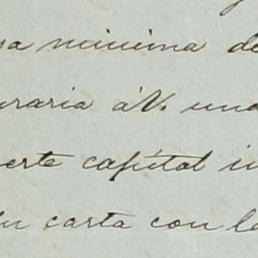 sa minima de
uraria á V. una
erte capital in
su carta con la